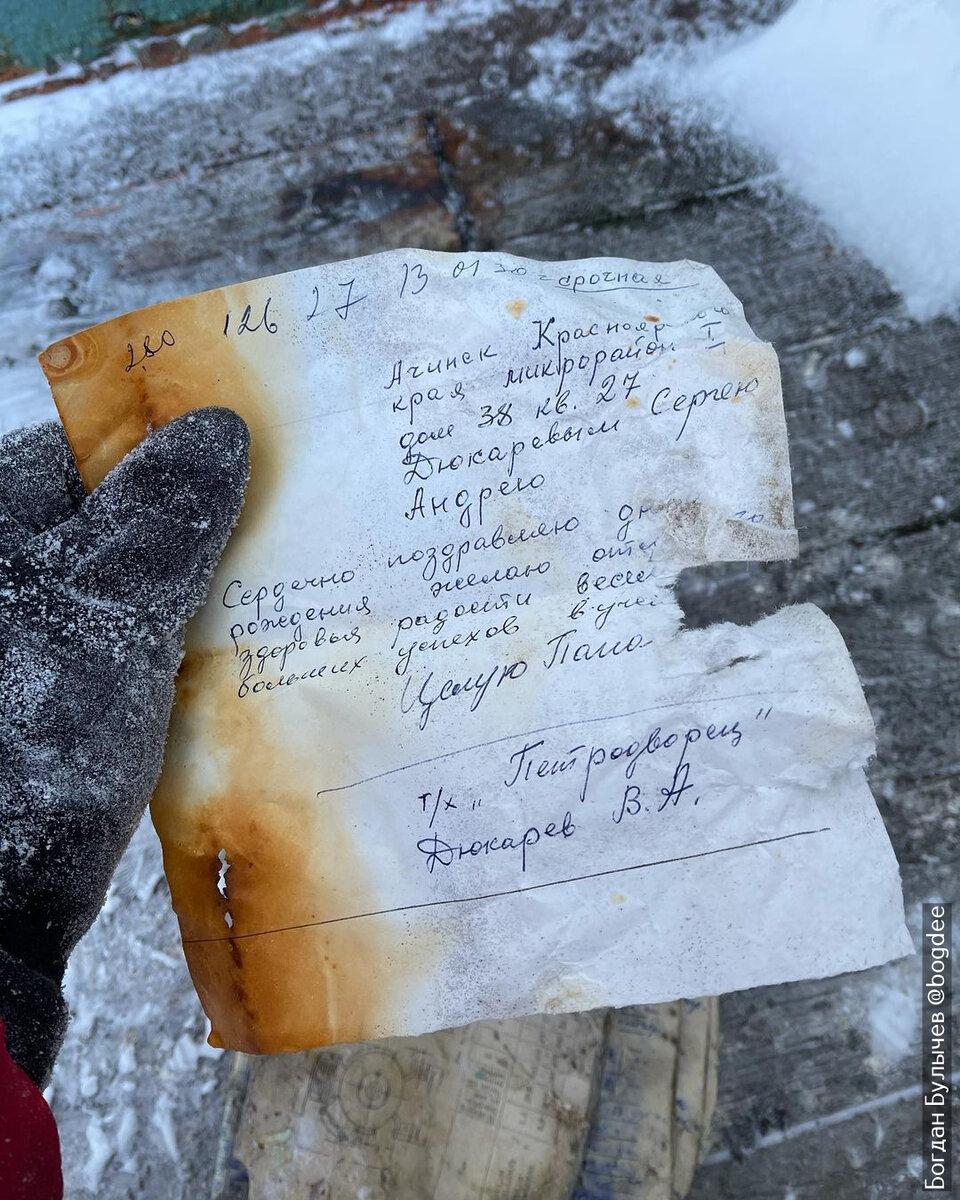 280 126 27 13 01 30 срочная
Ачинск
края микрорайон I
дом 38 кв. 27
Дюкаревым Сергею
Андрею
Сердечно поздравляю
рождения желаю
здоровья радости
больших успехов
Целую Папа
т/х „Петродворец"
Дюкарев В.А.
Богдан Булычев @bogdee